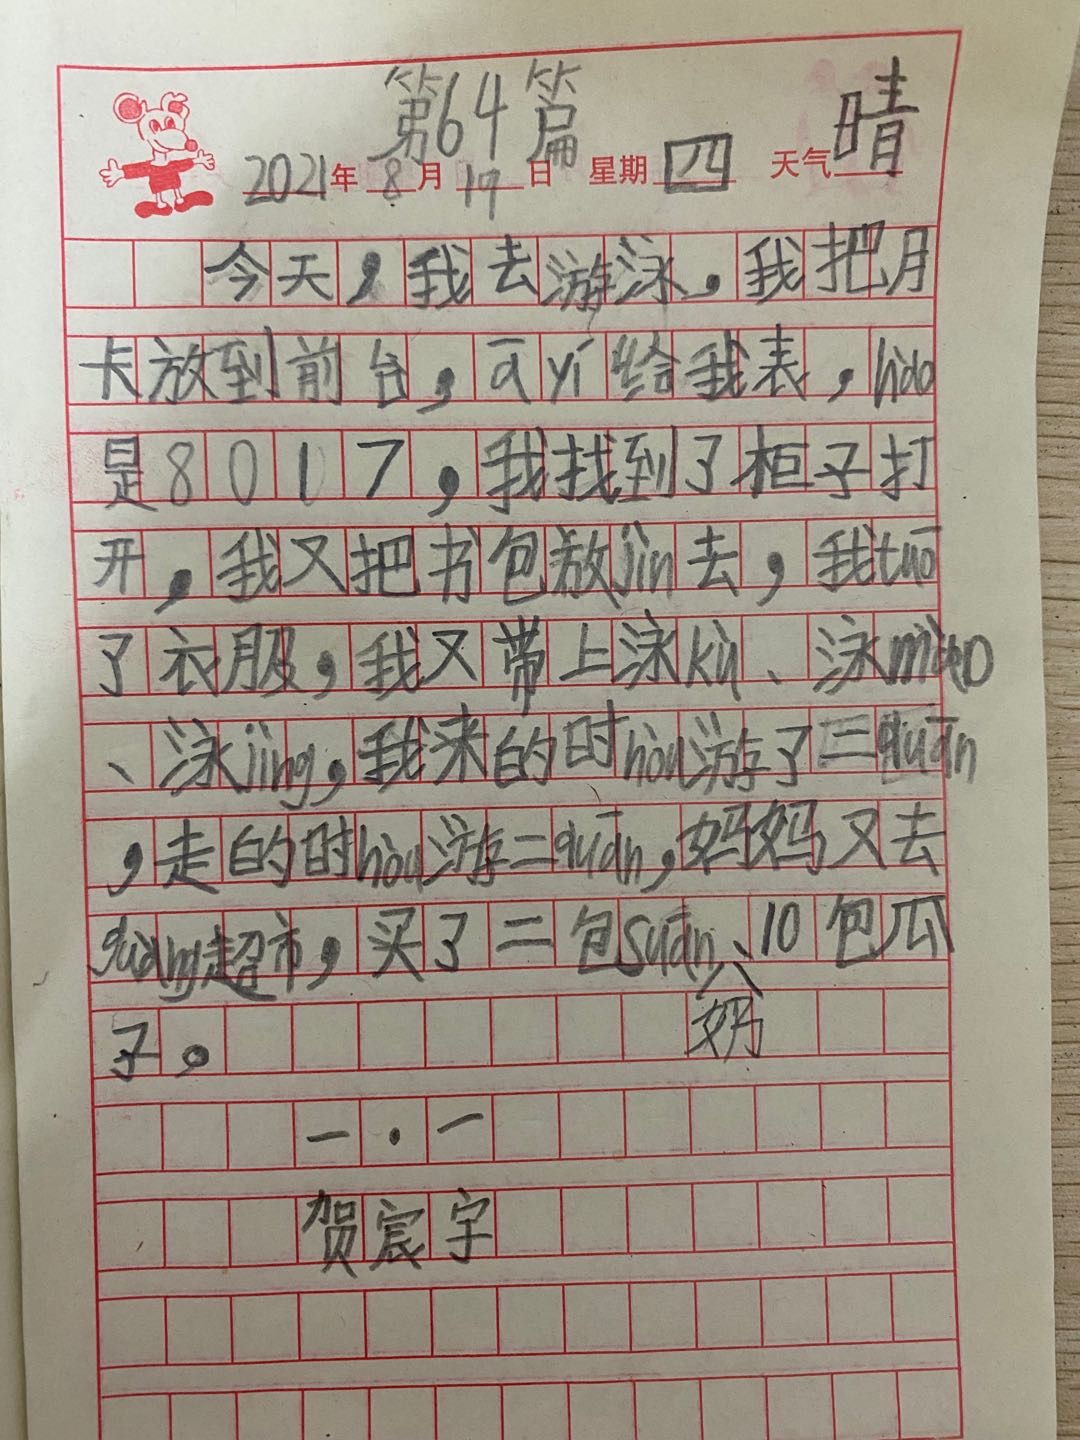 第64篇
2021年8月19日 星期四 天气晴
今天，我去游泳，我把月
卡放到前台，ā yí给我表，hào
是8017，我找到了柜子打
开，我又把书包放jìn去，我tuō
了衣服，我又带上泳kù、泳mào
、泳jìng，我来的时hòu游了二quān
，走的时hòu游二quān，妈妈又去
guàng超市，买了二包suān奶、10包瓜
子。
一·一
贺宸宇